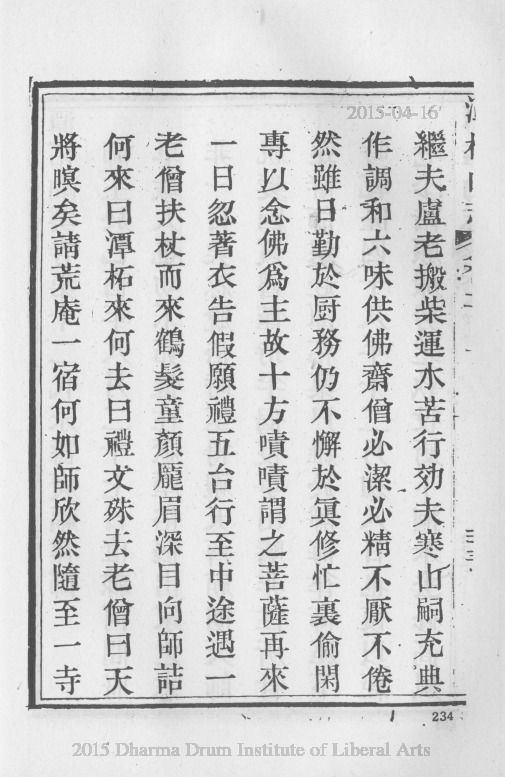 2015-04-16
繼夫盧老搬柴運水苦行効夫寒山嗣充典
作調和六味供佛齋僧必潔必精不厭不倦
然雖日勤於厨務仍不懈於眞修忙裏偷閑
專以念佛爲主故十方嘖嘖謂之菩薩再來
一日忽著衣告假願禮五台行至中途遇一
老僧扶杖而來鶴髮童顏龐眉深目向師詰
何來曰潭柘來何去曰禮文殊去老僧曰天
將暝矣請荒庵一宿何如師欣然隨至一寺
234
2015 Dharma Drum Institute of Liberal Arts